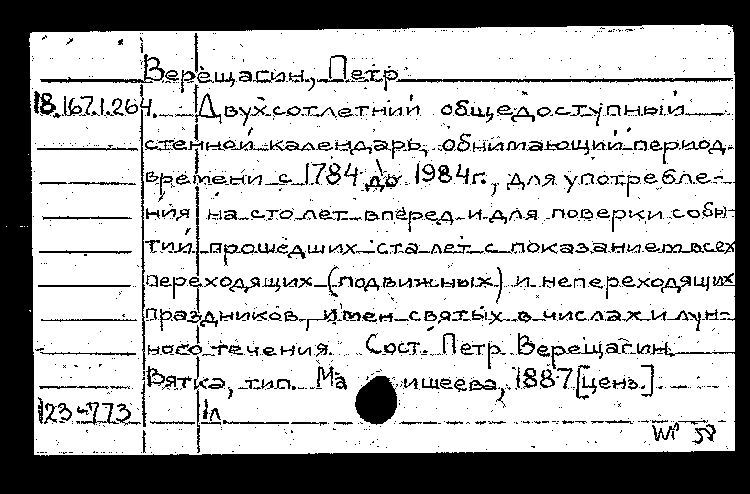 Верещагин, Петр
18.167.1.264. Двухсотлетний общедоступный
стенной календарь, обнимающий период
времени с 1784 до 1984г., для употребле-
ния на сто лет вперед и для поверки собы-
тий прошедших ста лет с показанием всех
переходящих (подвижных) и непереходящих
праздников, имен святых в числах и лун-
ного течения. Сост. Петр Верещагин.
Вятка, тип. 1887 [ценз.].
1л.
123-773